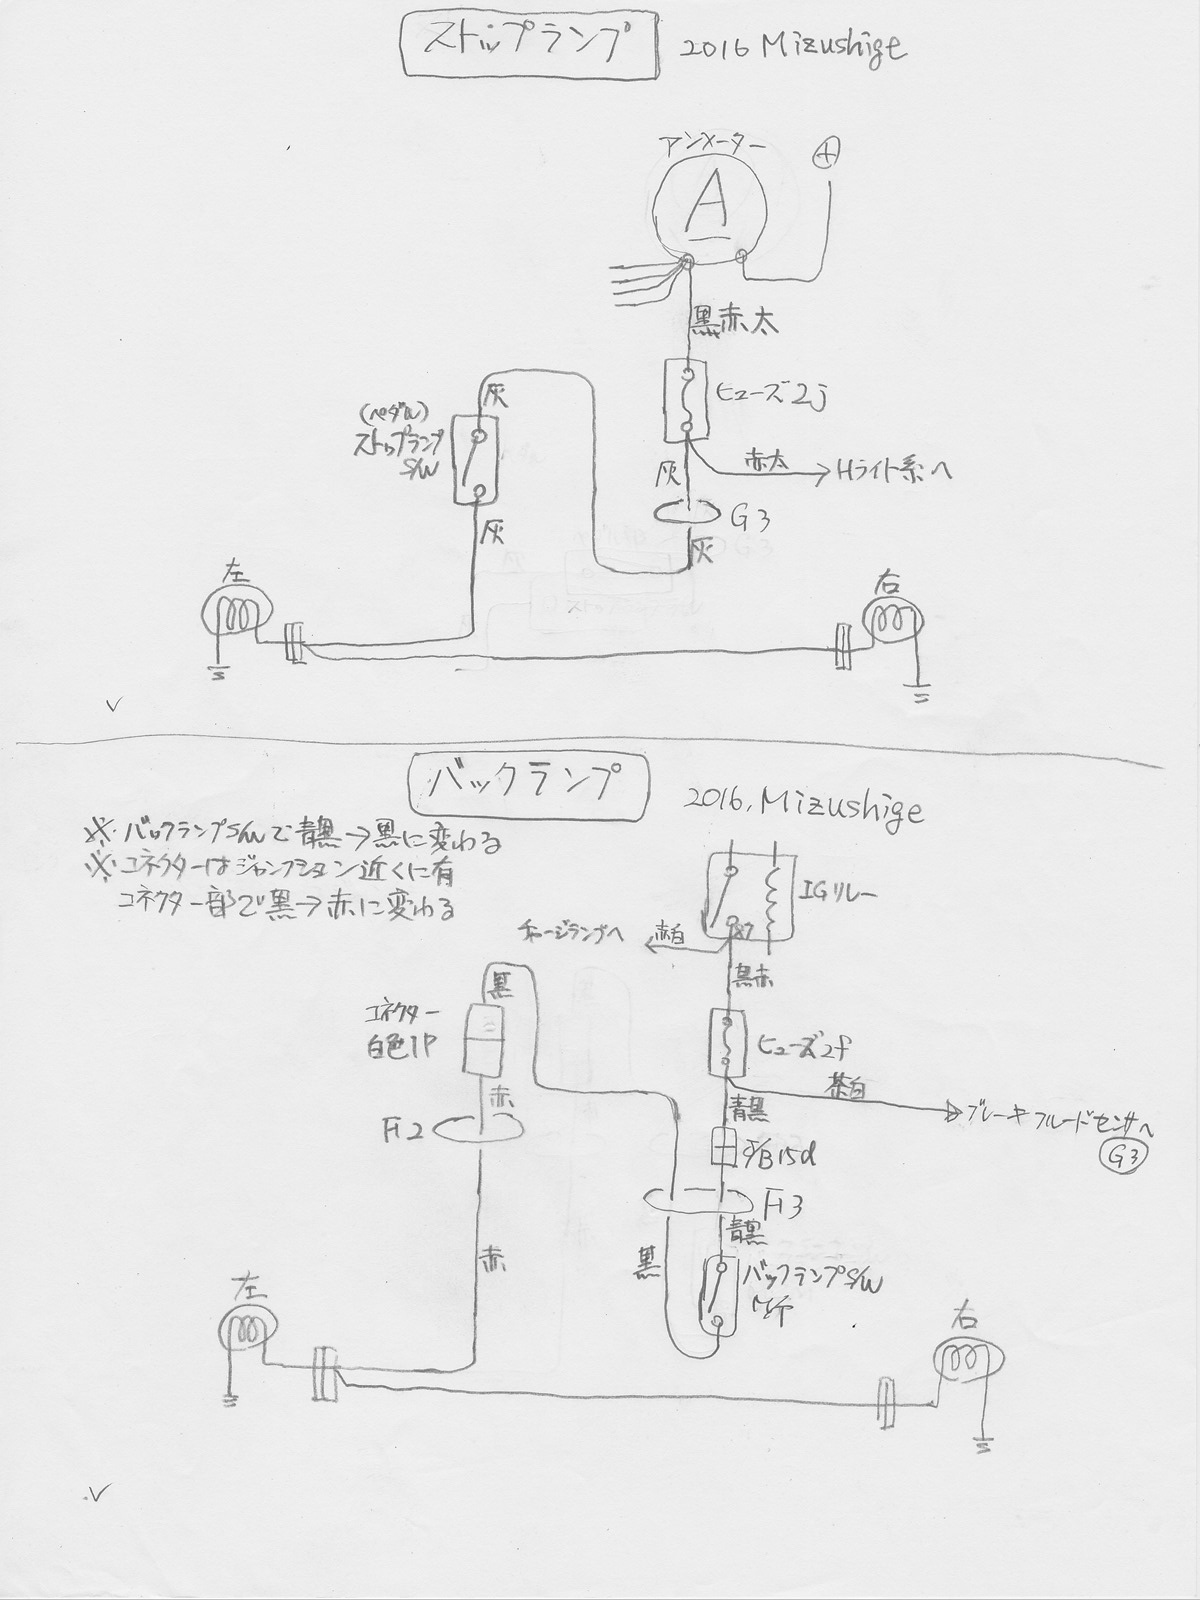 ストップランプ 2016 Mizushige
アンメーター
⊕
A
黒赤太
ヒューズ2j
灰
(ペダル)
ストップランプ
S/W
赤太
Hライト系へ
灰
G3
灰
灰
左
右
バックランプ 2016, Mizushige
※バックランプS/Wで青黒→黒に変わる
※コネクターはジャンクション近くに有
コネクター部で黒→赤に変わる
IGリレー
87
チャージランプへ
赤白
黒赤
黒
コネクター
白色1P
ヒューズ2f
茶白
赤
青黒
ブレーキフルードセンサへ
G3
Fi2
J/B15d
Fi3
青黒
赤
黒
バックランプS/W
左
右